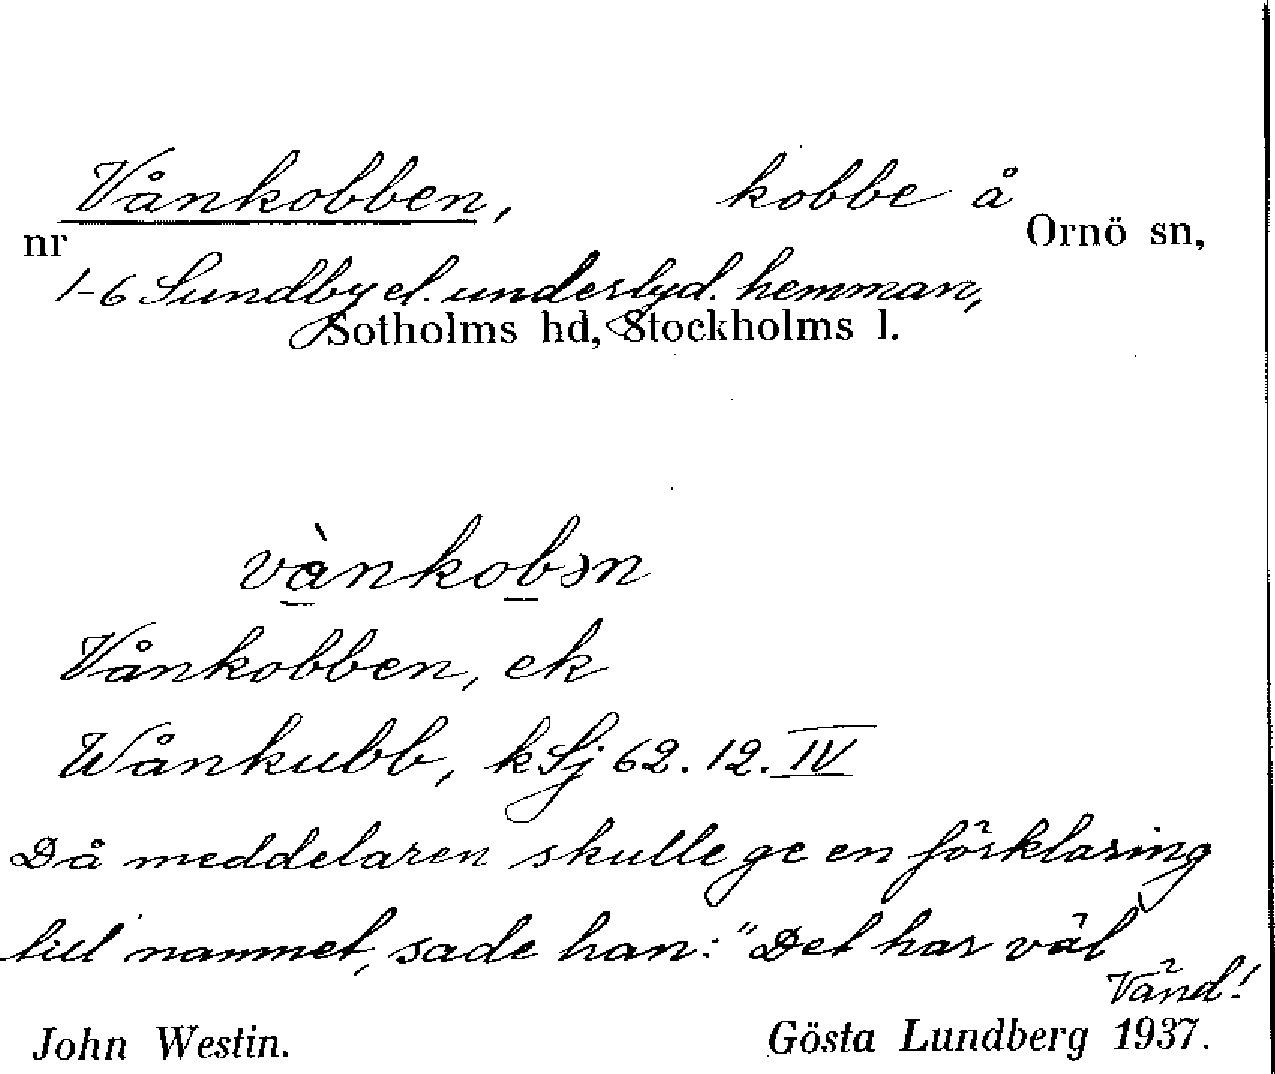 Vånkobben, kobbe å
Ornö sn,
nr
1-6 Sundby el. underlyd. hemman,
Sotholms hd, Stockholms l.
vànkobən
Vånkobben, ek
Wånkubb, kSj 62.12.IV
Då meddelaren skulle ge en förklaring
till namnet, sade han: "Det har väl
Vänd!
John Westin. Gösta Lundberg 1937.